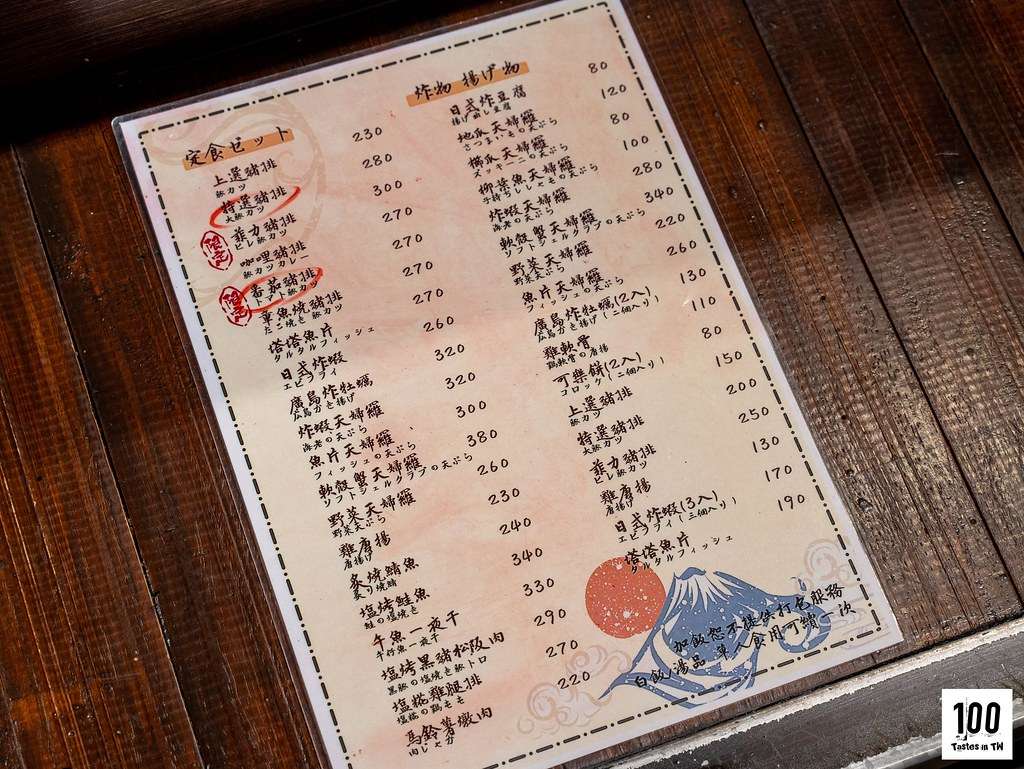 定食セット
上選豬排 230
豚カツ
特選豬排 280
大豚カツ
限定
菲力豬排 300
ヒレ豚カツ
咖哩豬排 270
豚カツカレー
限定
番茄豬排 270
トマト豚カツ
章魚燒豬排 270
たこ焼き豚カツ
塔塔魚片 270
タルタルフィッシュ
日式炸蝦 260
エビフライ
廣島炸牡蠣 320
広島カキ揚げ
炸蝦天婦羅 320
海老の天ぷら
魚片天婦羅 300
フィッシュの天ぷら
軟殼蟹天婦羅 380
ソフトシェルクラブの天ぷら
野菜天婦羅 260
野菜天ぷら
雞唐揚 230
唐揚げ
炙燒鯖魚 240
炙り焼鯖
塩烤鮭魚 340
鮭の塩焼き
午魚一夜干 330
塩烤黑豬松阪肉 290
黒豚の塩焼き豚トロ
塩糀雞腿排 270
塩糀の鶏もも
馬鈴薯燉肉 220
肉じゃが
炸物 揚げ物
日式炸豆腐 80
揚げ出し豆腐
地瓜天婦羅 120
さつまいもの天ぷら
櫛瓜天婦羅 80
ズッキーニの天ぷら
柳葉魚天婦羅 100
子持ちししゃもの天ぷら
炸蝦天婦羅 280
海老の天ぷら
軟殼蟹天婦羅 340
ソフトシェルクラブの天ぷら
野菜天婦羅 220
野菜天ぷら
魚片天婦羅 260
フィッシュの天ぷら
廣島炸牡蠣(2入) 130
広島カキ揚げ(二個入り)
雞軟骨 110
鶏軟骨の唐揚
可樂餅(2入) 80
コロッケ(二個入り)
上選豬排 150
豚カツ
特選豬排 200
大豚カツ
菲力豬排 250
ヒレ豚カツ
雞唐揚 130
唐揚げ
日式炸蝦(3入) 170
エビフライ(三個入り)
塔塔魚片 190
タルタルフィッシュ
加飯恕不提供打包服務
白飯/湯品 單人食用可續一次
100
Tastes in TW